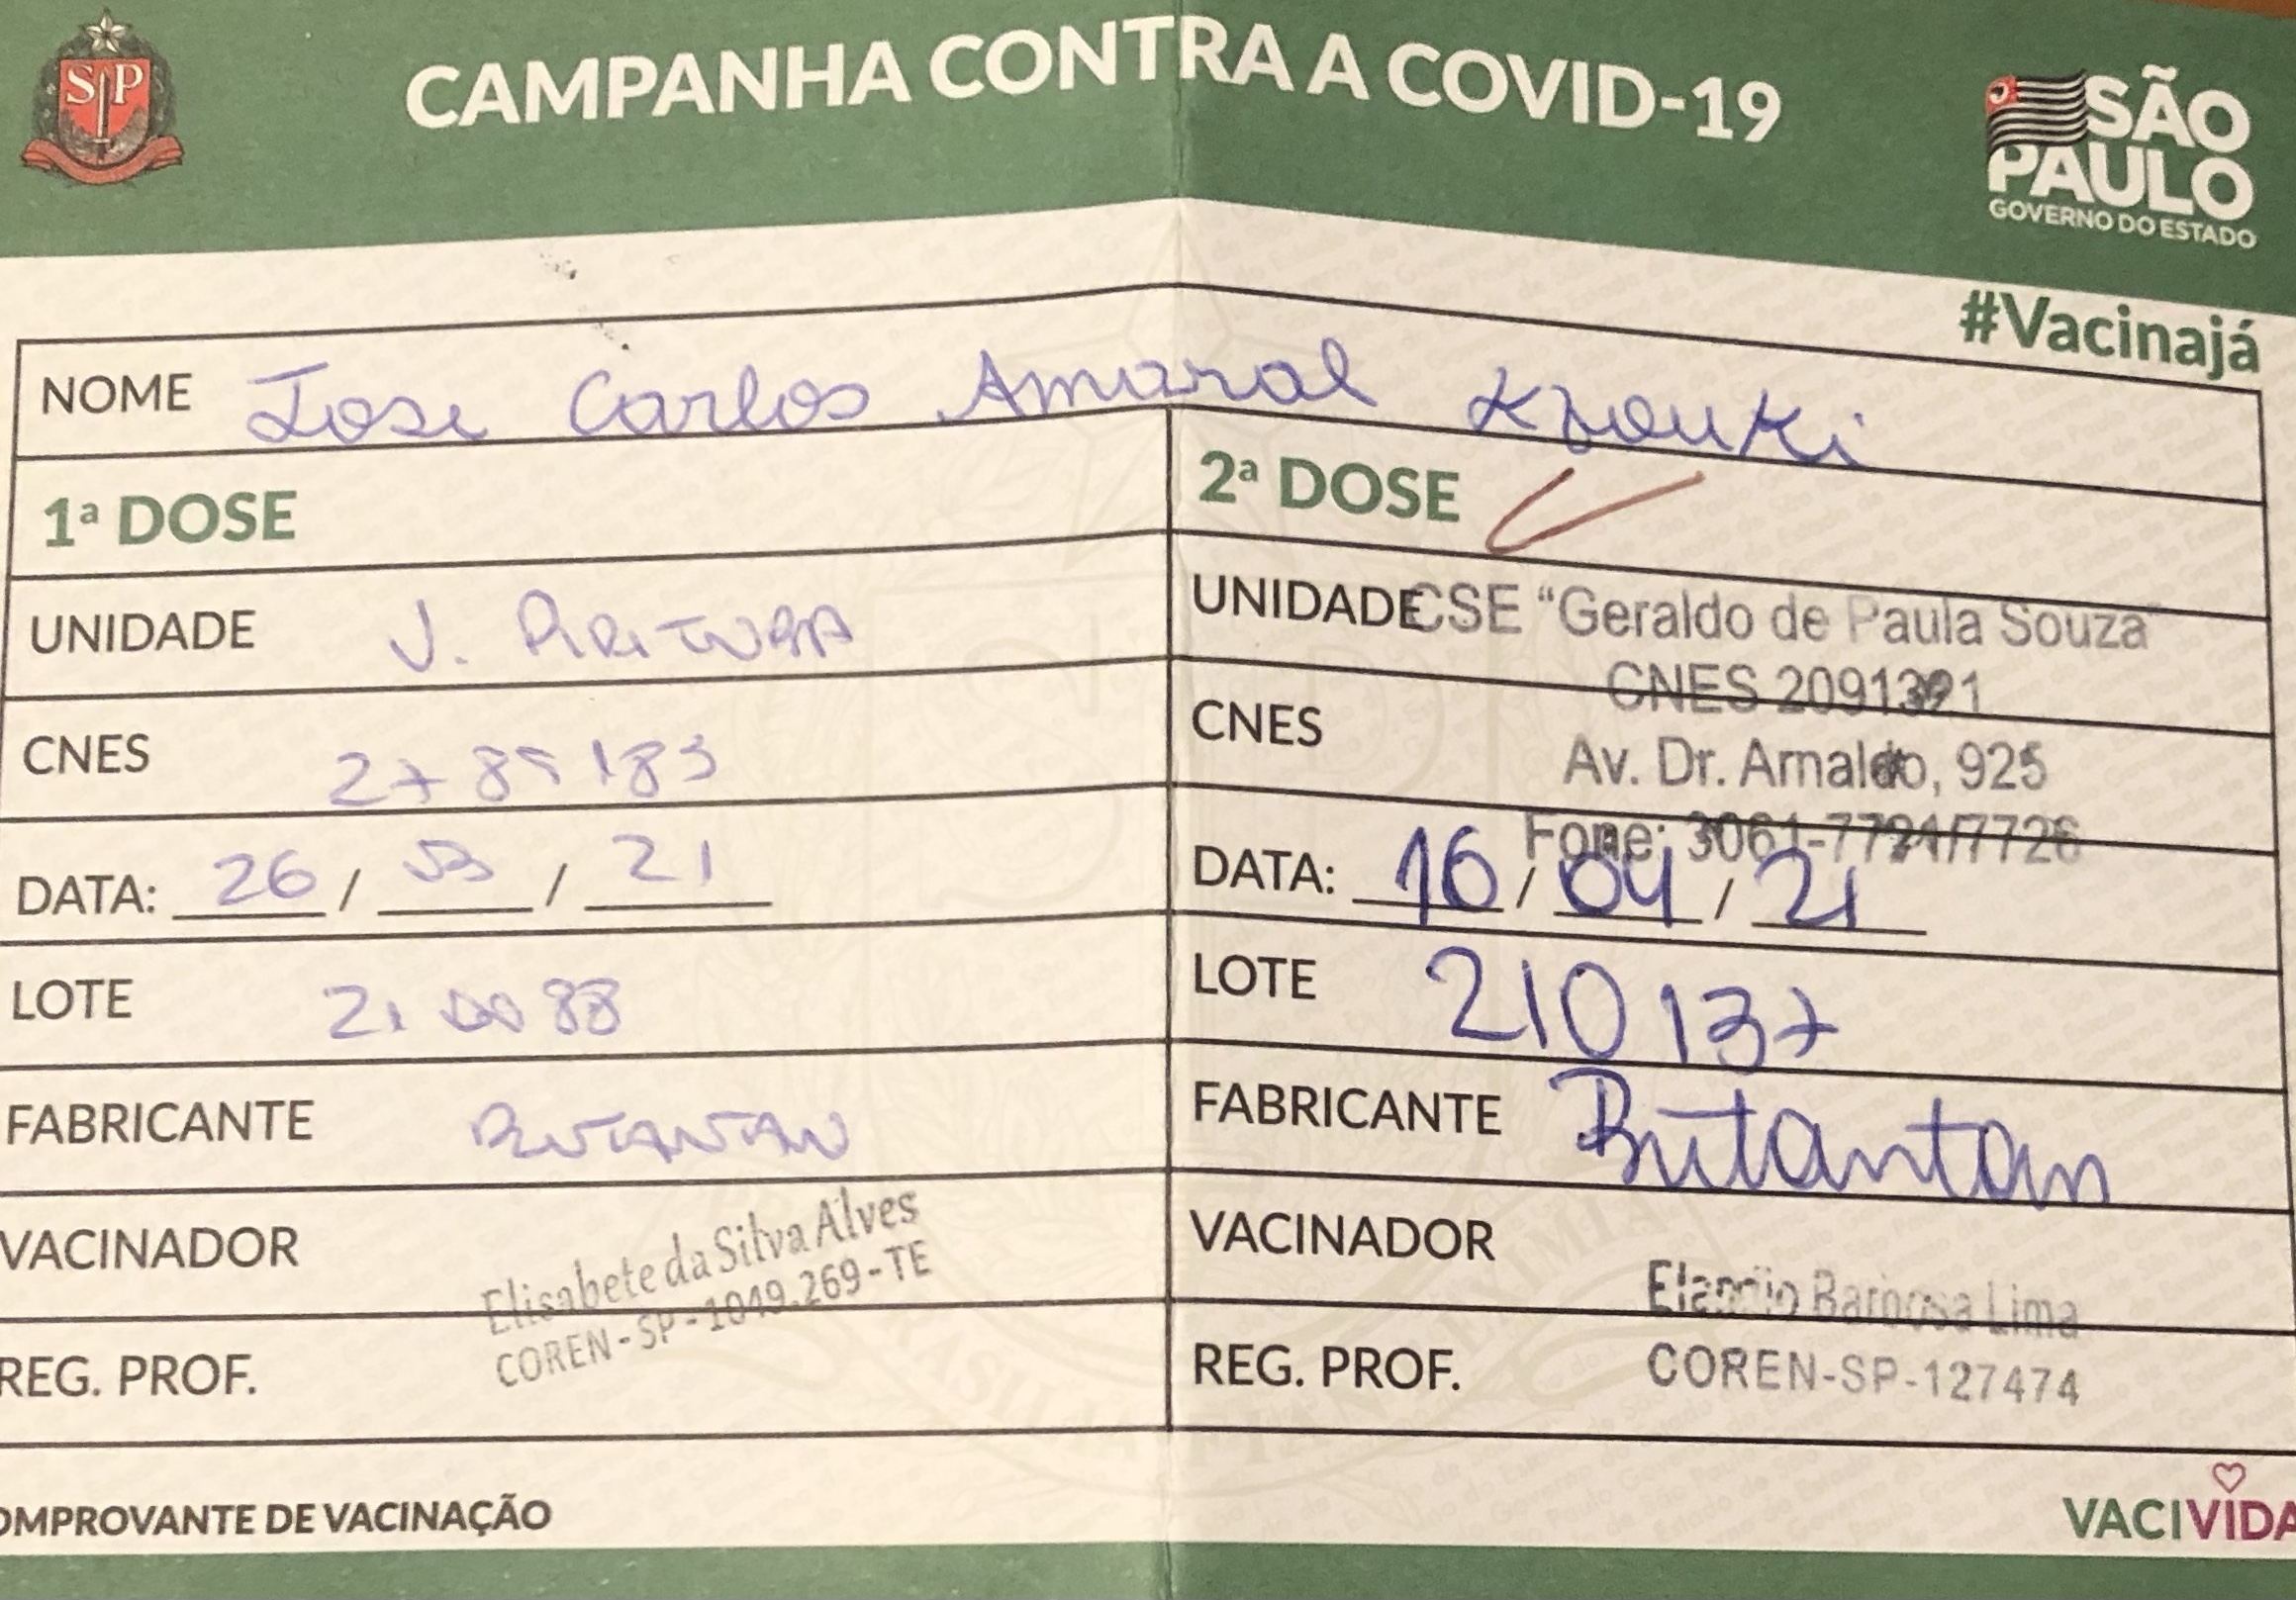 SP
CAMPANHA CONTRA A COVID-19
SÃO
PAULO
GOVERNO DO ESTADO
#Vacinajá
NOME Jose Carlos Amaral
1ª DOSE
UNIDADE J. PIRITUBA
CNES
DATA: 26 / 03 / 21
LOTE
FABRICANTE BUTANTAN
VACINADOR Elisabete da Silva Alves
REG. PROF. COREN-SP-1049.269-TE
2ª DOSE
UNIDADE CSE "Geraldo de Paula Souza"
CNES 2091321
CNES Av. Dr. Arnaldo, 925
Fone: 3061-7721/7726
DATA: 16 / 04 / 21
LOTE 210137
FABRICANTE Butantan
VACINADOR Barbosa Lima
REG. PROF. COREN-SP-127474
OMPROVANTE DE VACINAÇÃO
VACIVIDA